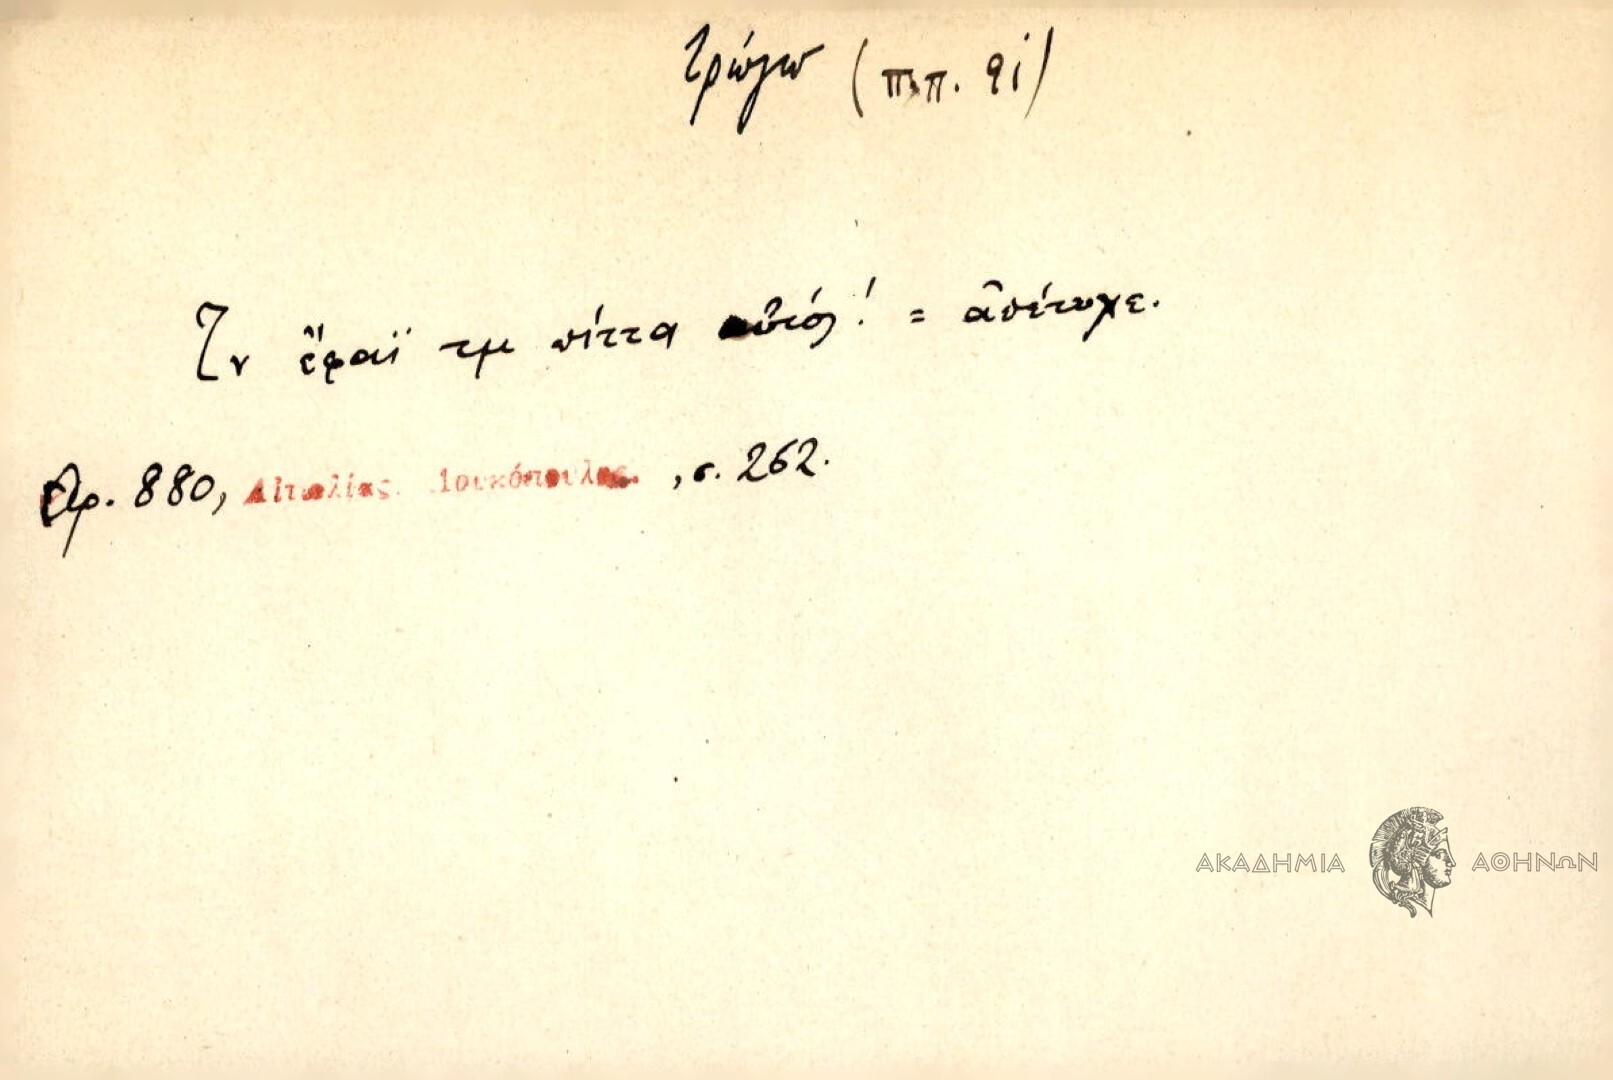 τρώγω (π.π. 9i)
Τν ἔφαϊ τμ πίττα αὐτός! = ἀπέτυχε.
Ἀρ. 880, Αἰτωλίας. Λουκόπουλος. , σ. 262.
ΑΚΑΔΗΜΙΑ ΑΘΗΝΩΝ